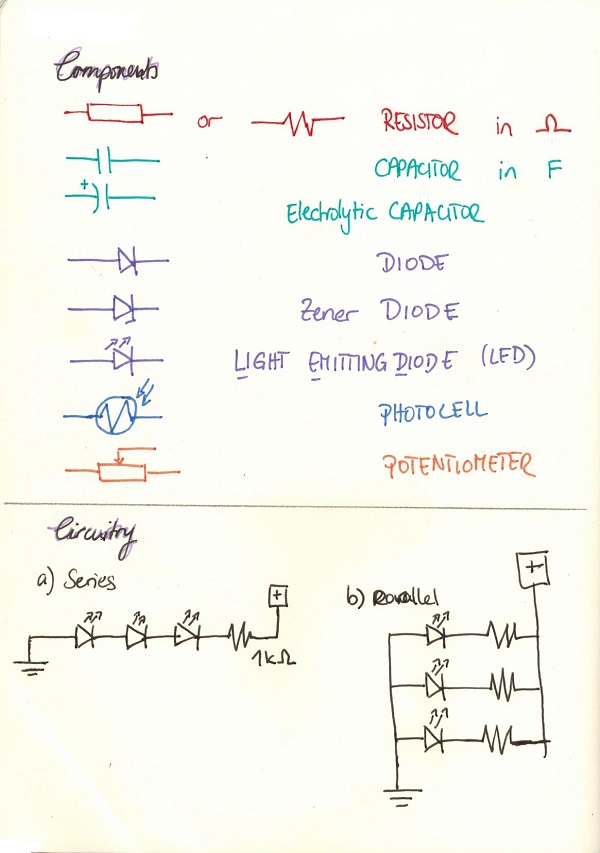 Components
or RESISTOR in Ω
CAPACITOR in F
+
Electrolytic CAPACITOR
DIODE
Zener DIODE
LIGHT EMITTING DIODE (LED)
PHOTOCELL
POTENTIOMETER
Circuitry
a) Series
+
1kΩ
b) Parallel
+